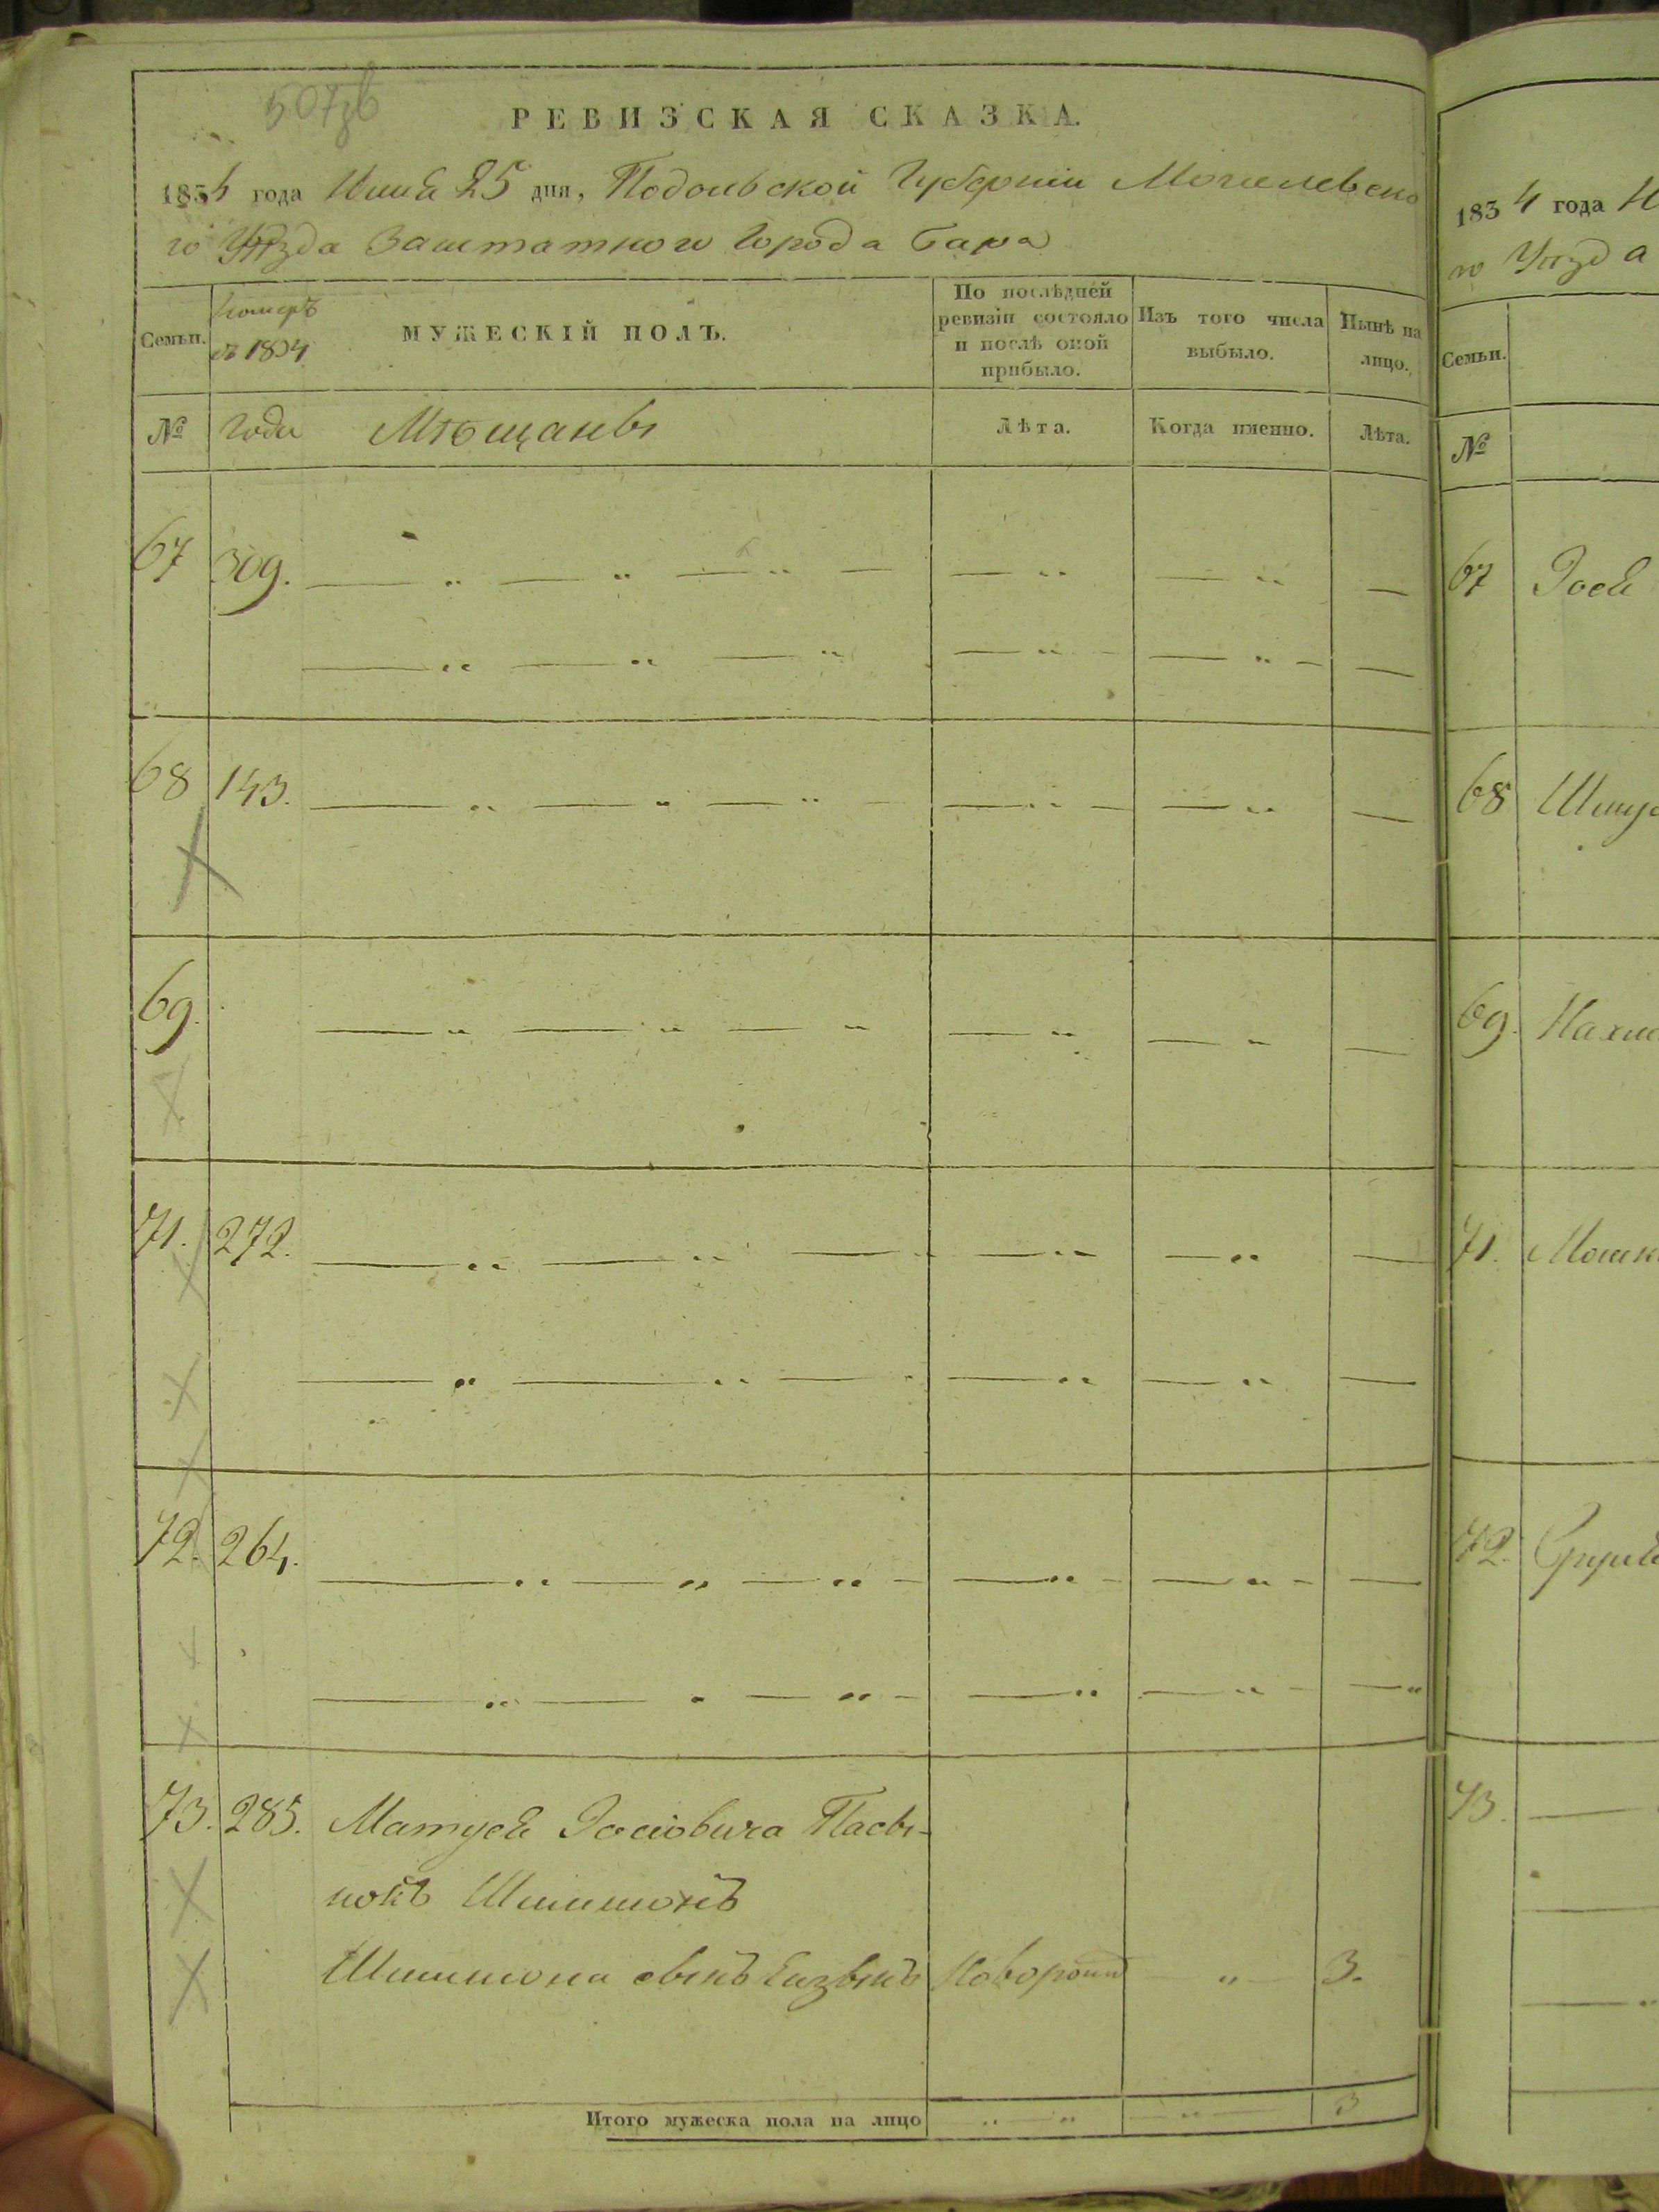 507
РЕВИЗСКАЯ СКАЗКА.
1834 года Июня 25 дня, Подольской Губерніи Могилевско
го Уѣзда Заштатного Города Бара
Семьи.
номеръ
1834
года
МУЖЕСКІЙ ПОЛЪ.
По послѣдней
ревизіи состояло
и послѣ оной
прибыло.
Изъ того числа
выбыло.
Нынѣ на
лицо.
№ Мѣщаны
Лѣта. Когда именно. Лѣта.
67 309. — „ — „ — „ — — „ — „ —
— „ — „ — „ — „ — — „ — —
68 143. — „ — „ — „ — — „ — — „ —
69. — „ — „ — „ — „ — „ —
71. 272. — „ — „ — — „ — „ —
— „ — „ — — „ — „ —
72. 264. — „ — „ — „ — — „ — — „ — —
— „ — „ — „ — — „ — „ — — „
73. 285. Матуся Іосіовича Пасы-
нокъ Шлимонъ
Шлимона сынъ Новорожд — „ — 3.
Итого мужеска пола на лицо — „ — „ — „ — 3
1834 года И
го Уѣзда
Семьи.
№
67 Іося
68
69.
71. Мошк
72.
73. —